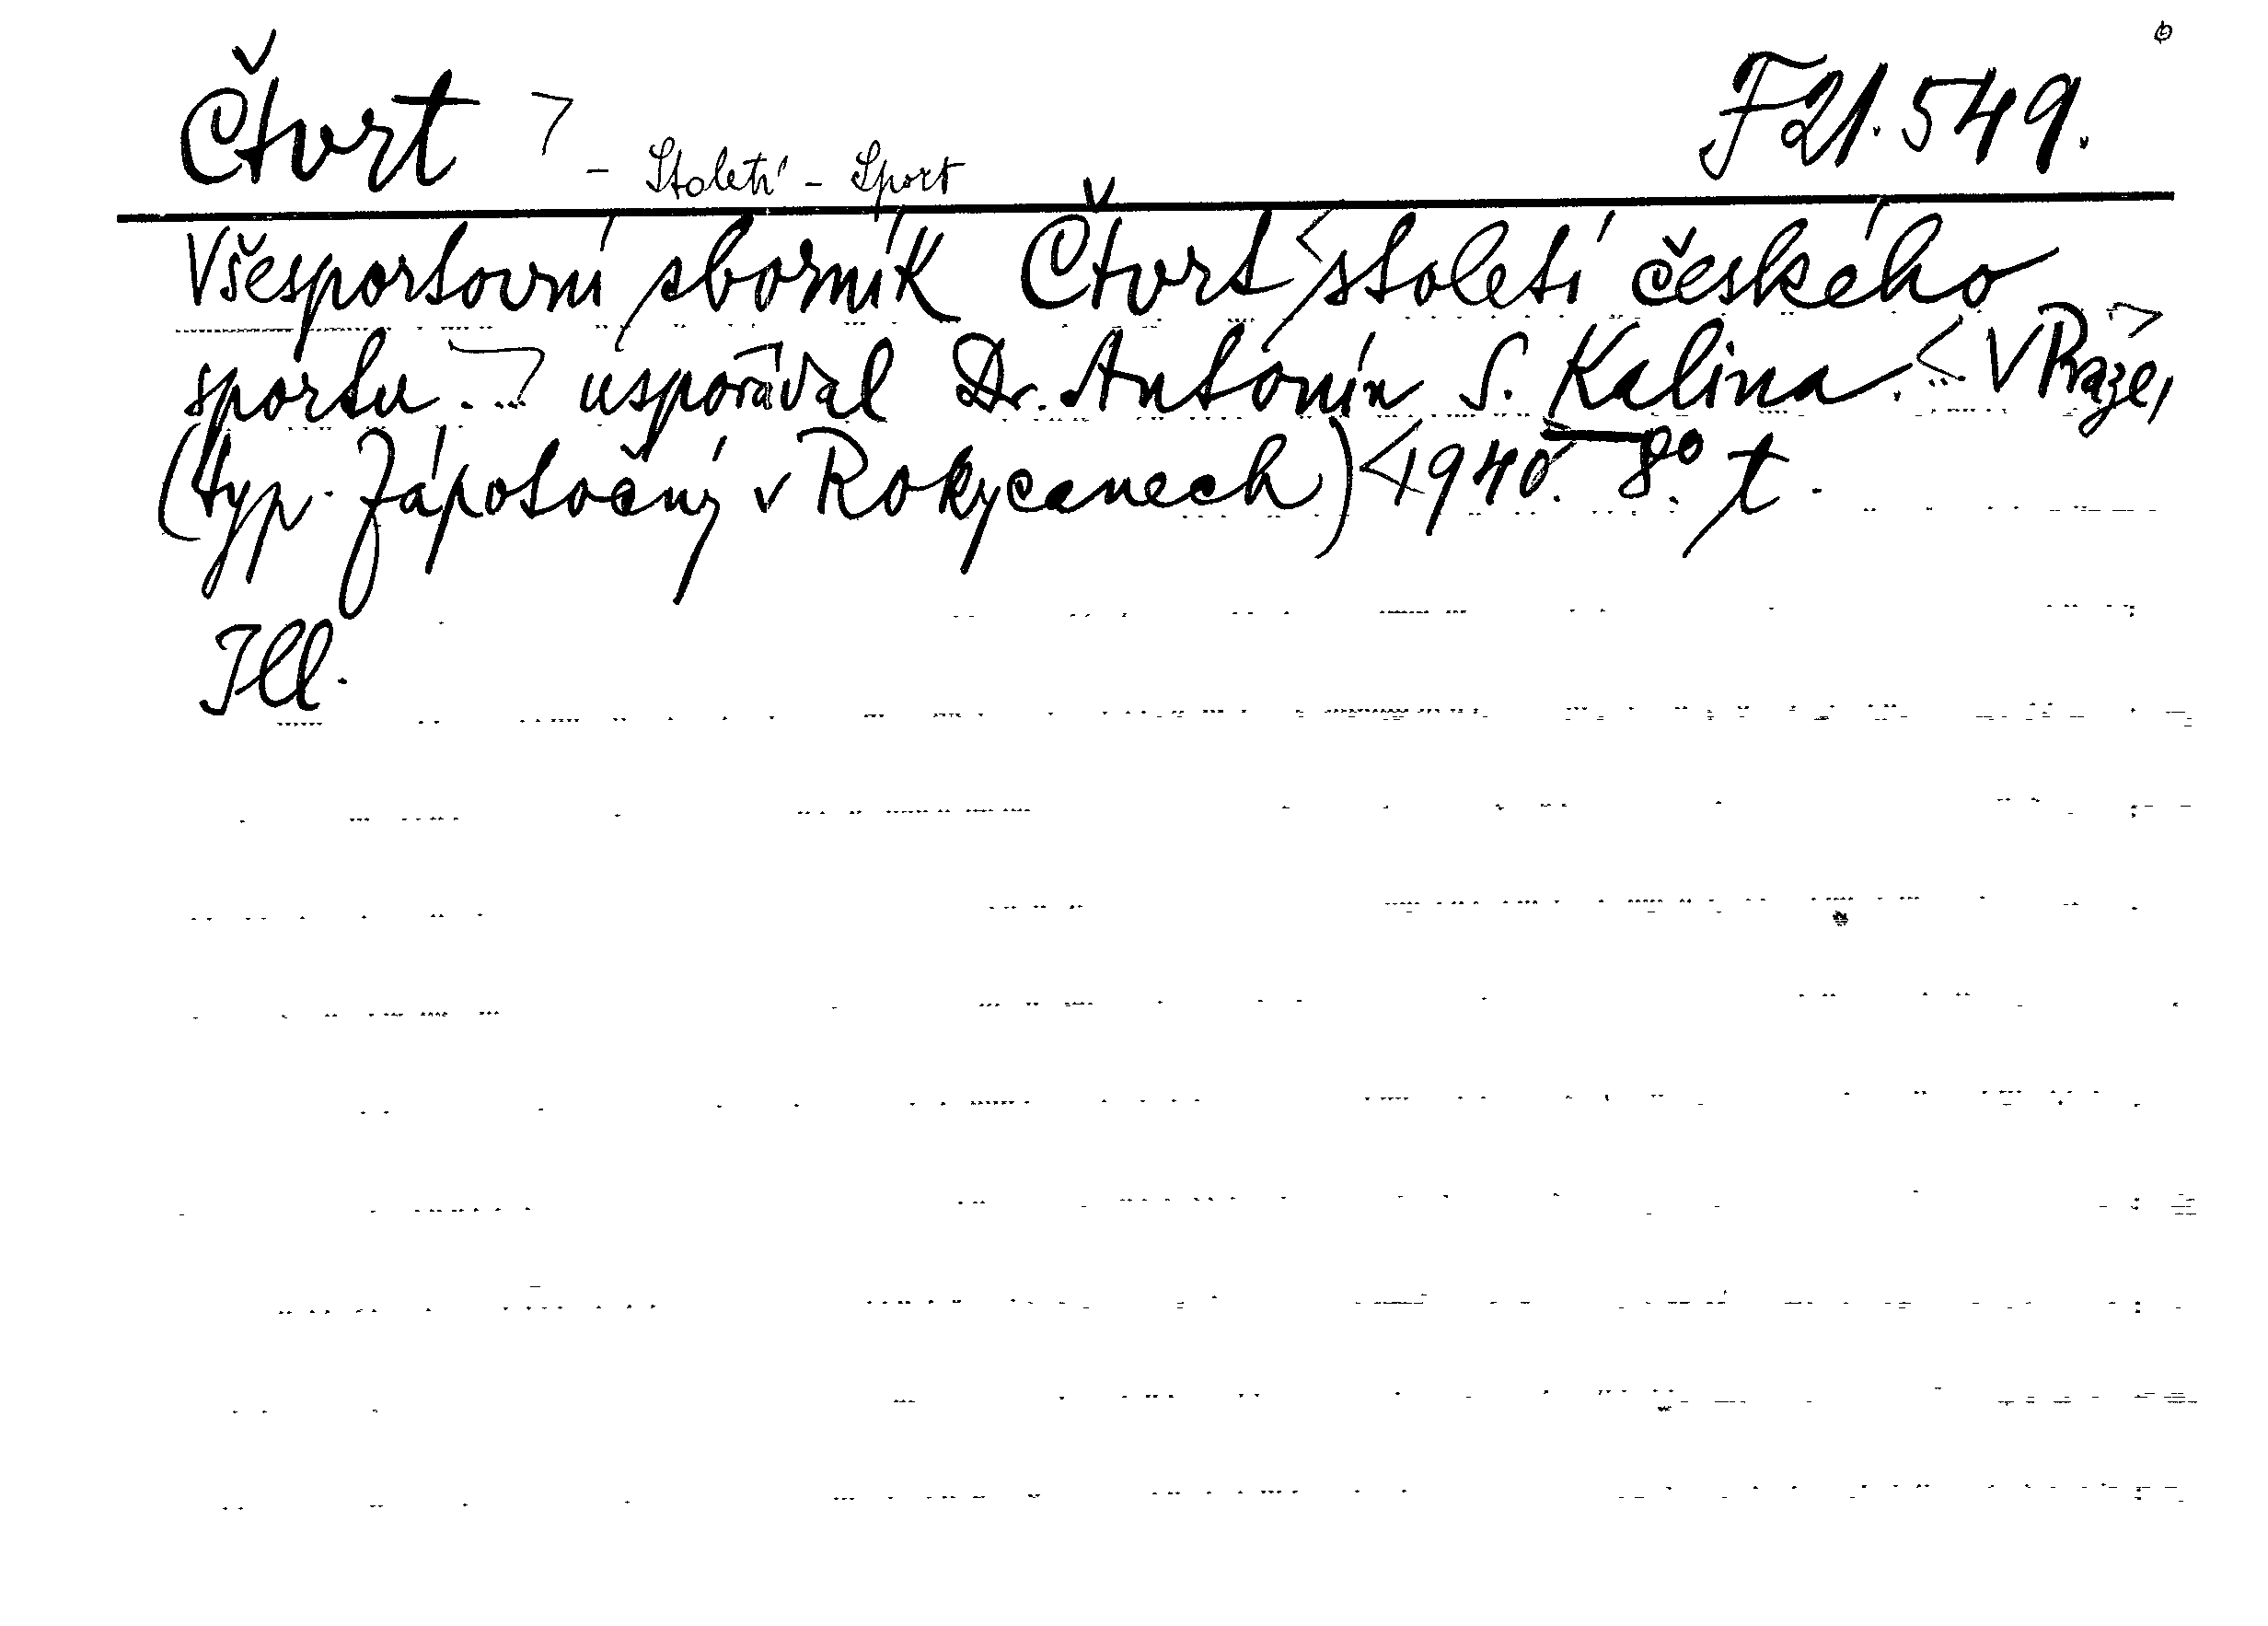 Čtvrt - Století - Sport F 21.549.
Všesportovní sborník Čtvrt století českého
sportu. uspořádal Dr. Antonín S. Kalina. V Praze,
(typ. Zápotočný v Rokycanech) 1940. 8º. t.
Ill.